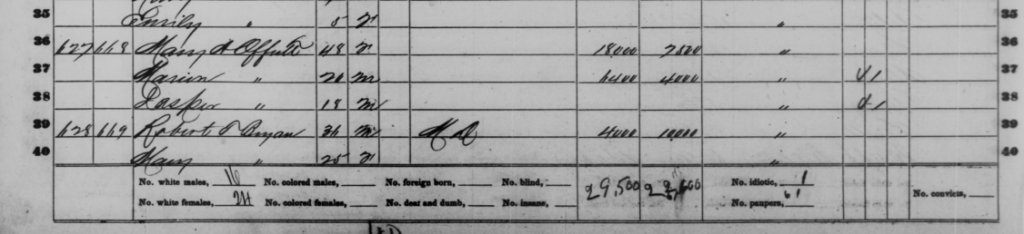 35 Emily " 5 35
36 627 668 Mary A Offutt 48 18,000 7500 " 36
37 Marion " 20 m 6400 4000 " 1 37
38 Jasper " 18 m " 1 38
39 628 669 Robert Bryan m M D 4000 10,000 " 39
40 Mary " 25 " 40
No. white males, 16 No. colored males, No. foreign born, No. blind, 29,500 No. idiotic, 1 No. convicts,
No. white females, 24 No. colored females, No. deaf and dumb, No. insane, No. paupers,